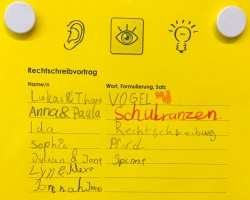 Rechtschreibvortrag
Name/n Wort, Formulierung, Satz
Lukas & VOGEL
Anna & Paula Schulranzen
Ida Rechtschreibung
Sophie Pferd
Julian & Jana Spinne
Lyn &